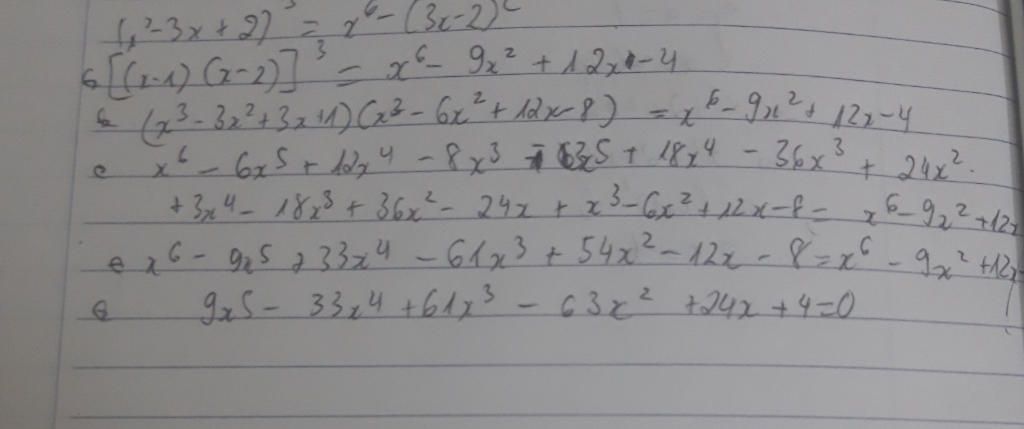 (x²-3x+2)³ = x⁶-(3x-2)²
[(x-1)(x-2)]³ = x⁶- 9x² + 12x -4
(x³- 3x²+3x+1)(x³- 6x²+ 12x-8) = x⁶-9x²+ 12x-4
x⁶ - 6x⁵ + 12x⁴ - 8x³ - 3x⁵ + 18x⁴ - 36x³ + 24x²
+3x⁴- 18x³ + 36x²- 24x + x³-6x²+12x-8 = x⁶-9x²+12x
x⁶- 9x⁵ +33x⁴ -61x³ + 54x² -12x - 8=x⁶ - 9x²+12x
9x5- 33x⁴+61x³ - 63x² +24x +4=0